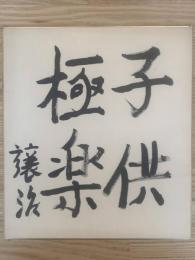 子供
極楽
譲治